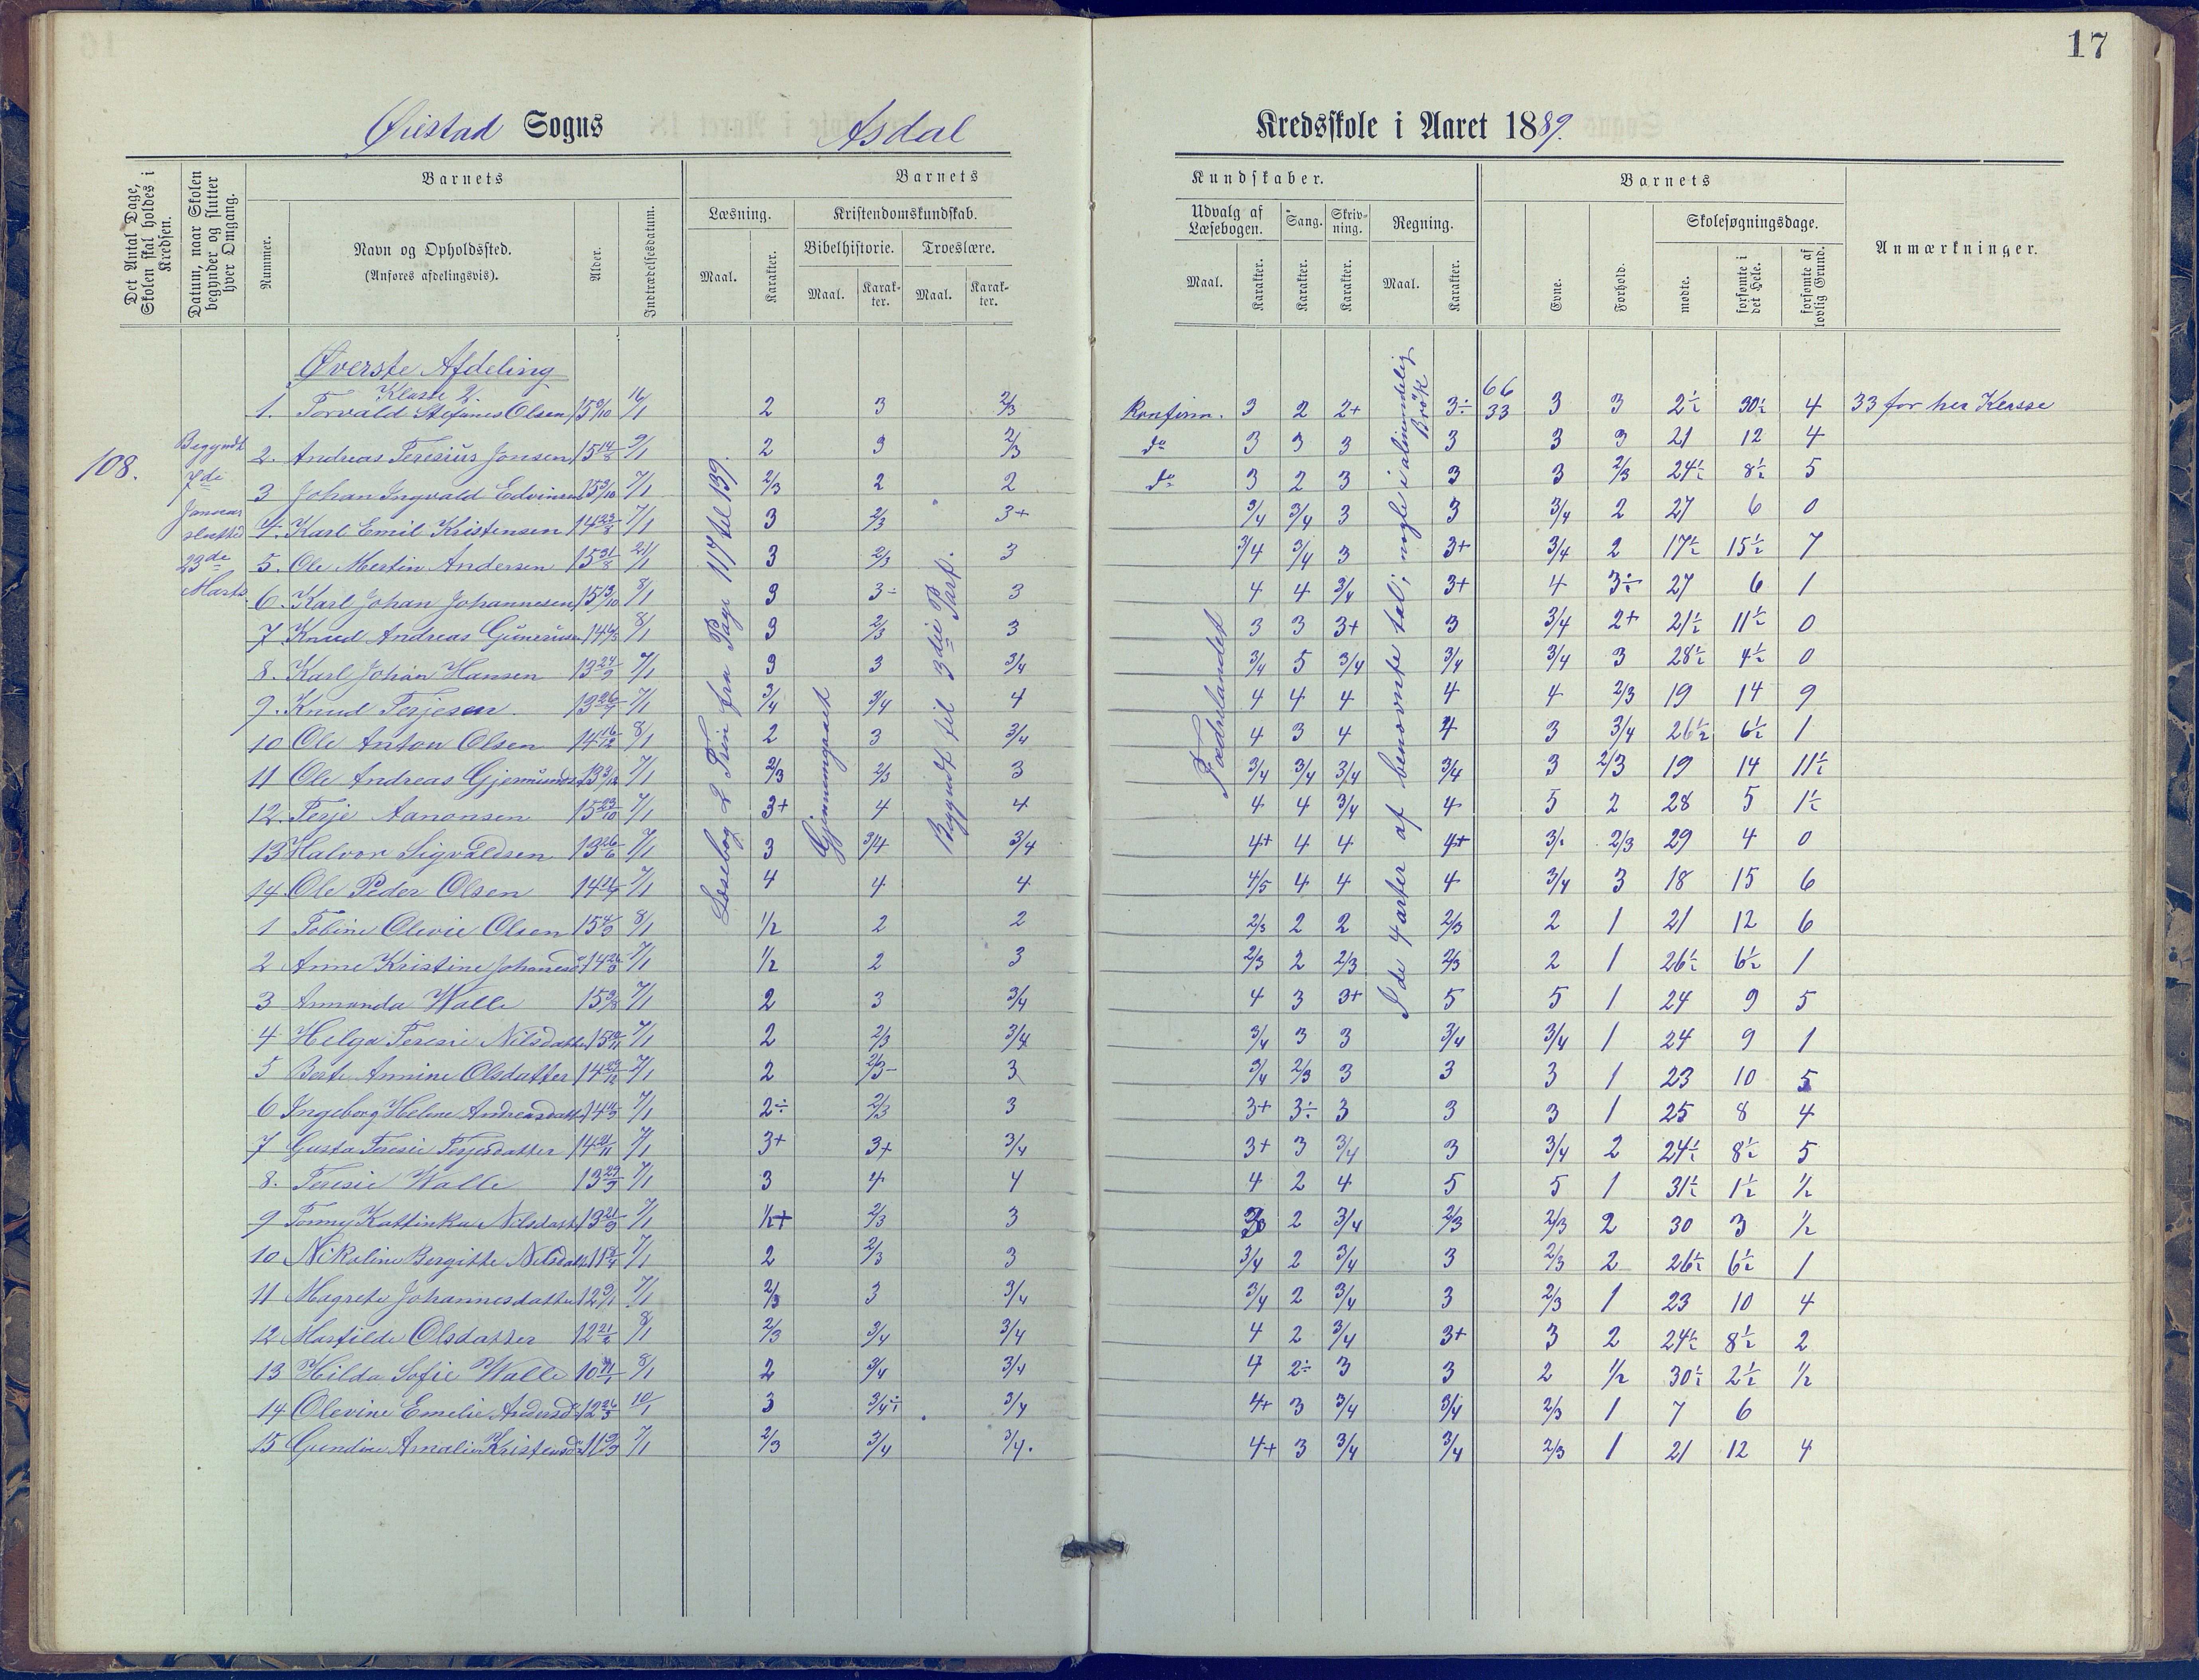 17
Øiestad Sogns Asdal Kredsskole i Aaret 1889.
Det Antal Dage, Skolen skal holdes i Kredsen.
Datum, naar Skolen begynder og slutter hver Omgang.
Barnets
Nummer.
Navn og Opholdssted.
(Anføres afdelingsvis).
Alder.
Indtrædelsesdatum.
Barnets
Læsning.
Maal.
Karakter.
Kristendomskundskab.
Bibelhistorie.
Maal.
Karakter.
Troeslære.
Maal.
Karakter.
Kundskaber.
Udvalg af Læsebogen.
Maal.
Karakter.
Sang.
Karakter.
Skrivning.
Karakter.
Regning.
Maal.
Karakter.
Barnets
Evne.
Forhold.
Skolesøgningsdage.
mødte.
forsømte i det Hele.
forsømte af lovlig Grund.
Anmærkninger.
108.
Begyndt
7de
Januar
slutted
23de
Marts.
Læsebog 2 Trin fra Page 117 til 139.
Gjennemgaaet
Begyndt til 3die Part.
Fædrelandet
I de 4 arter af benævnte tal; nogle i almindelig Brök
Øverste Afdeling
Klasse 2.
66
1. Torvald Stefanus Olsen 16/1 2 3 2/3 Konfirm. 3 2 2+ 3÷ 33 3 3 2½ 30½ 4 33 for her Klasse
2. Andreas Teresius Jonsen 15 14/8 9/1 2 3 2/3 do 3 3 3 3 3 3 21 12 4
3 Johan Ingvald Edvinsen 15 3/10 7/1 2/3 2 2 do 3 2 3 3 3 2/3 24½ 8½ 5
4. Karl Emil Kristensen 14 23/8 7/1 3 2/3 3+ 3/4 3/4 3 3 3/4 2 27 6 0
5. Ole Mertin Andersen 15 31/8 21/1 3 2/3 3 3/4 3/4 3 3+ 3/4 2 17½ 15½ 7
6. Karl Johan Johannesen 15 13/10 8/1 3 3÷ 3 4 4 3/4 3+ 4 3÷ 27 6 1
7. Knud Andreas Gunerius 8/1 3 2/3 3 3 3 3+ 3 3/4 2+ 21½ 11½ 0
8. Karl Johan Hansen 13 24/9 7/1 3 3 3/4 3/4 5 3/4 3/4 3/4 3 28½ 4½ 0
9. Knud Terjesen 13 26/7 7/1 3/4 3/4 4 4 4 4 4 4 2/3 19 14 9
10 Ole Anton Olsen 14 16/12 8/1 2 3 3/4 4 3 4 4 3 3/4 26½ 6½ 1
11 Ole Andreas Gjermunds 13 3/12 7/1 2/3 2/3 3 3/4 3/4 3/4 3/4 3 2/3 19 14 11½
12. Terje Aanonsen 15 23/10 7/1 3+ 4 4 4 4 3/4 4 5 2 28 5 1½
13 Halvor Sigvaldsen 13 26/6 7/1 3 3/4 3/4 4+ 4 4 4+ 2/3 29 4 0
14. Ole Peder Olsen 7/1 4 4 4 4/5 4 4 4 3/4 3 18 15 6
1 Tobine Olevie Olsen 15 4/9 8/1 1/2 2 2 2/3 2 2 2/3 2 1 21 12 6
2 Anne Kristine Johannesd 7/1 1/2 2 3 2/3 2 2/3 2/3 2 1 26½ 6½ 1
3 Armanda Walle 15 9/8 7/1 2 3 3/4 4 3 3+ 5 5 1 24 9 5
4 Helga Teresie Nilsdatter 7/1 2 2/3 3/4 3/4 3 3 3/4 3/4 1 24 9 1
5 Berte Annine Olsdatter 7/1 2 2/3- 3 3/4 2/3 3 3 3 1 23 10 5
6 Ingeborg Helene Andreasdatt 7/1 2÷ 2/3 3 3+ 3÷ 3 3 3 1 25 8 4
7 Gusta Teresie Terjesdatter 14 21/11 7/1 3+ 3+ 3/4 3+ 3 3/4 3 3/4 2 24½ 8½ 5
8. Teresie Walle 13 29/9 7/1 3 4 4 4 2 4 5 5 1 31½ 1½ ½
9 Tonny Kattinka Nilsdatt 13 21/9 7/1 1/2+ 2/3 3 3 2 3/4 2/3 2/3 2 30 3 ½
10 Nikoline Bergitte Nilsdatt 7/1 2 2/3 3 3/4 2 3/4 3 2/3 2 26½ 6½ 1
11 Magrete Johannesdatter 12 9/1 7/1 2/3 3 3/4 3/4 2 3/4 3 2/3 1 23 10 4
12 Martilde Olsdatter 8/1 2/3 3/4 3/4 4 2 3/4 3+ 3 2 24½ 8½ 2
13 Hilda Sofie Walle 8/1 2 3/4 3/4 4 2÷ 3 3 2 1/2 30½ 2½ ½
14 Olevine Emelie Andersd 10/1 3 3/4÷ 3/4 4+ 3 3/4 3/4 2/3 1 7 6
15 Gundine Amalie Kristensd 7/1 2/3 3/4 3/4. 4+ 3 3/4 3/4 2/3 1 21 12 4